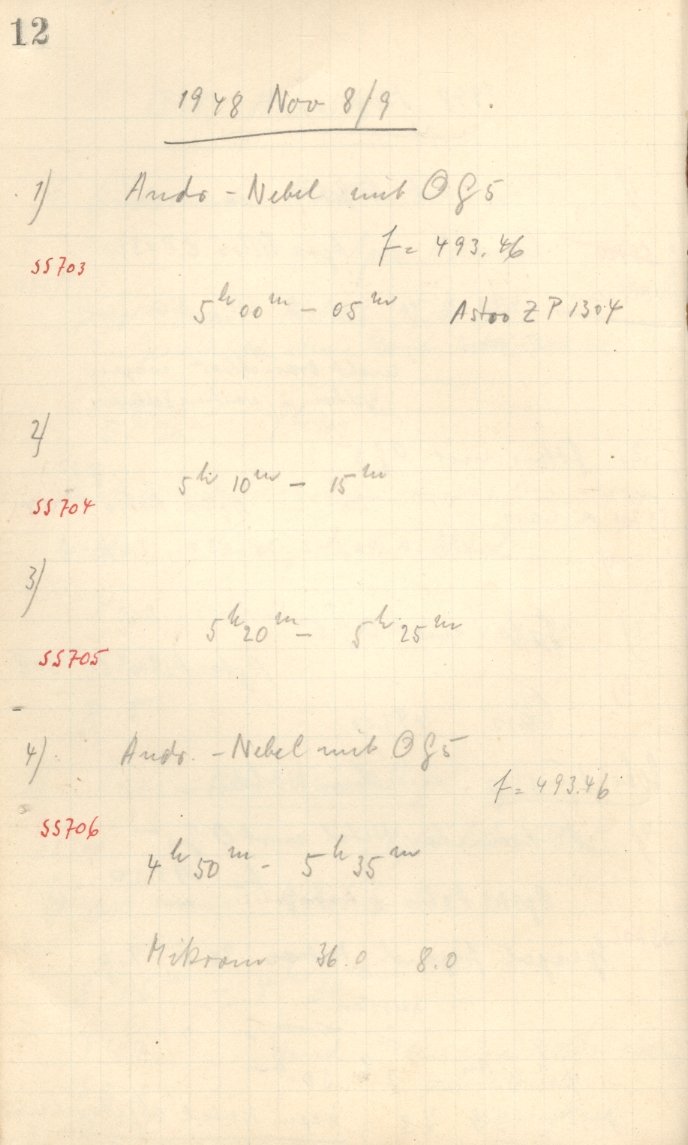 12
1948 Nov 8/9
1) Andr - Nebel mit OG5
f = 493.46
SS703
5h 00m - 05m Astro Z P 1304
2)
5h 10m - 15m
SS704
3)
5h 20m - 5h 25m
SS705
4) Andr. - Nebel mit OG5
f = 493.46
SS706
4h 50m - 5h 35m
Mikrom 36.0 8.0